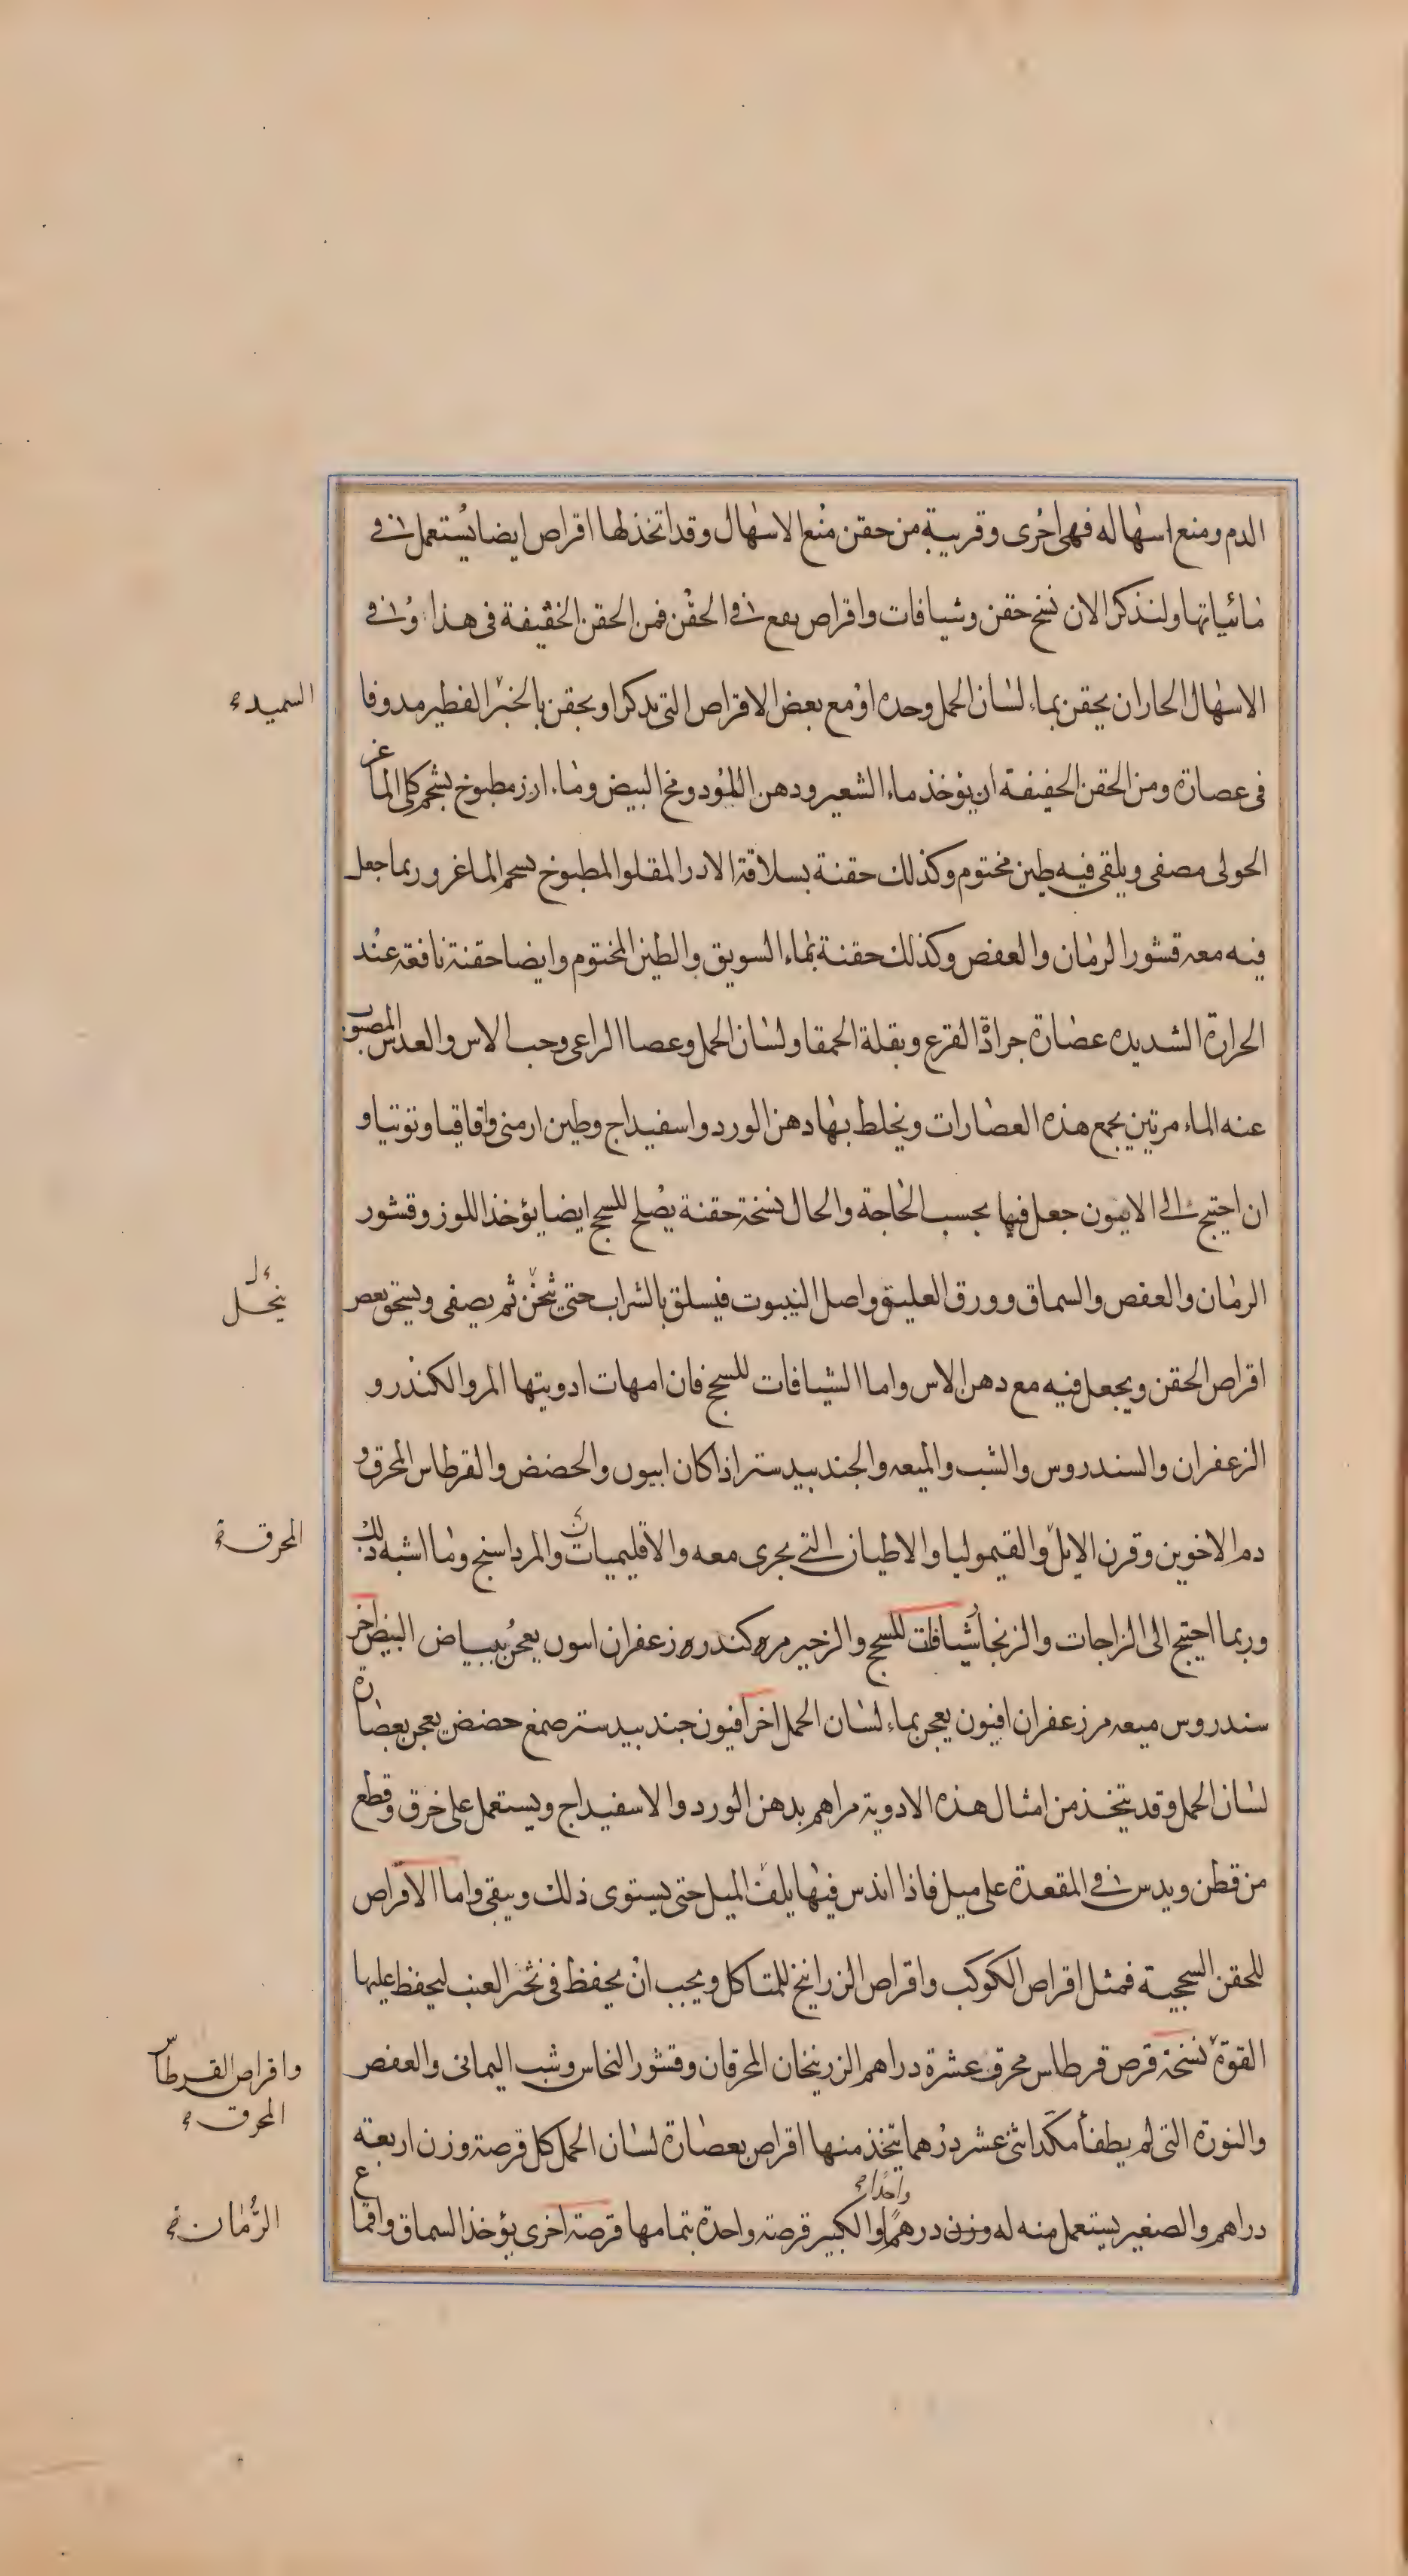 الدم ومنع اسهاله فهى اخرى وقريبة من حقن منع الاسهال وقد اتخذ لها اقراص ايضا يستعمل فى
مائياتها ولنذكر الان نسخ حقن وشيافات واقراص يقع فى الحقن فمن الحقن الخفيفة فى هذا وفى
الاسهال الحار ان يحقن بماء لسان الحمل وحده او مع بعض الاقراص التى يذكر او يحقن بالخبز الفطير مدوفا
السميد
فى عصارة ومن الحقن الخفيفة ان يؤخذ ماء الشعير ودهن الورد ومخ البيض وماء ارز مطبوخ بشحم كلى الماعز
الحولى مصفى ويلقى فيه طين مختوم وكذلك حقنة بسلاقة الارز المقلو المطبوخ بشحم الماعز وربما جعل
فيه معه قشور الرمان والعفص وكذلك حقنة بماء السويق والطين المختوم وايضا حقنة نافعة عند
الحرارة الشديده عصارة جرادة القرع وبقلة الحمقا ولسان الحمل وعصا الراعى وحب الاس والعدس المصبوب
عنه الماء مرتين يجمع هذه العصارات ويخلط بها دهن الورد واسفيداج وطين ارمنى واقاقيا وتوتيا و
ان احتيج الى الافيون جعل فيها بحسب الحاجة والحال نسخة حقنة يصلح للسحج ايضا يؤخذ اللوز وقشور
الرمان والعفص والسماق وورق العليق واصل الينبوت فيسلق بالشراب حتى يثخن ثم يصفى ويسحق بعص
ينحل
اقراص الحقن ويجعل فيه مع دهن الاس واما الشيافات للسحج فان امهات ادويتها المر والكندر و
الزعفران والسندروس والشب والميعه والجندبيدستر اذا كان ابيون والحضض والقرطاس المحرق و
دم الاخوين وقرن الايل والقيموليا والاطيان التى يجرى معه والاقليميات والمرداسنج وما اشبه ذلك
المحرق
وربما احتيج الى الزاجات والزنجار شيافات للسحج والزحير مره كندره زعفران ابيون يعجن ببياض البيض اخر
سندروس ميعه مر زعفران افيون يعجن بماء لسان الحمل اخر افيون جندبيدستر صمغ حضض يعجن بعصارة
لسان الحمل وقد يتخذ من امثال هذه الادوية مراهم بدهن الورد والاسفيداج ويستعمل على خرق وقطع
من قطن ويدس فى المقعدة على ميل فاذا اندس فيها يلف الميل حتى يستوى ذلك ويبقى واما الاقراص
للحقن السحجية فمثل اقراص الكوكب واقراص الزرانيخ للمتاكل ويجب ان يحفظ فى ثخبر العنب ليحفظ عليها
القوة نسخة قرص قرطاس محرق عشرة دراهم الزرنيخان المحرقان وقشور النحاس وشب اليمانى والعفص
واقراص القرطاس
المحرق
والنورة التى لم يطفأ مكد اثنى عشر درهما يتخذ منها اقراص بعصارة لسان الحمل كل قرصة وزن اربعة
دراهم والصغير يستعمل منه له وزن درهم واحدا والكبير قرصة واحدة بتمامها قرصة اخرى يؤخذ السماق واقماع
الرمان